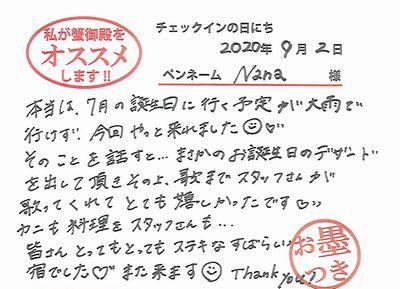 私が蟹御殿を
オススメ
します!!
チェックインの日にち
2020年9月2日
ペンネーム Nana 様
本当は、7月の誕生日に行く予定が大雨で
行けず、今回やっと来れました☺♡
そのことを話すと…まさかのお誕生日のデザート
を出して頂きその上、歌までスタッフさんが
歌ってくれてとても嬉しかったです♡
カニも料理をスタッフさんも…
皆さんとってもとってもステキなすばらしい
宿でした♡また来ます☺ Thank you♪
お墨つき